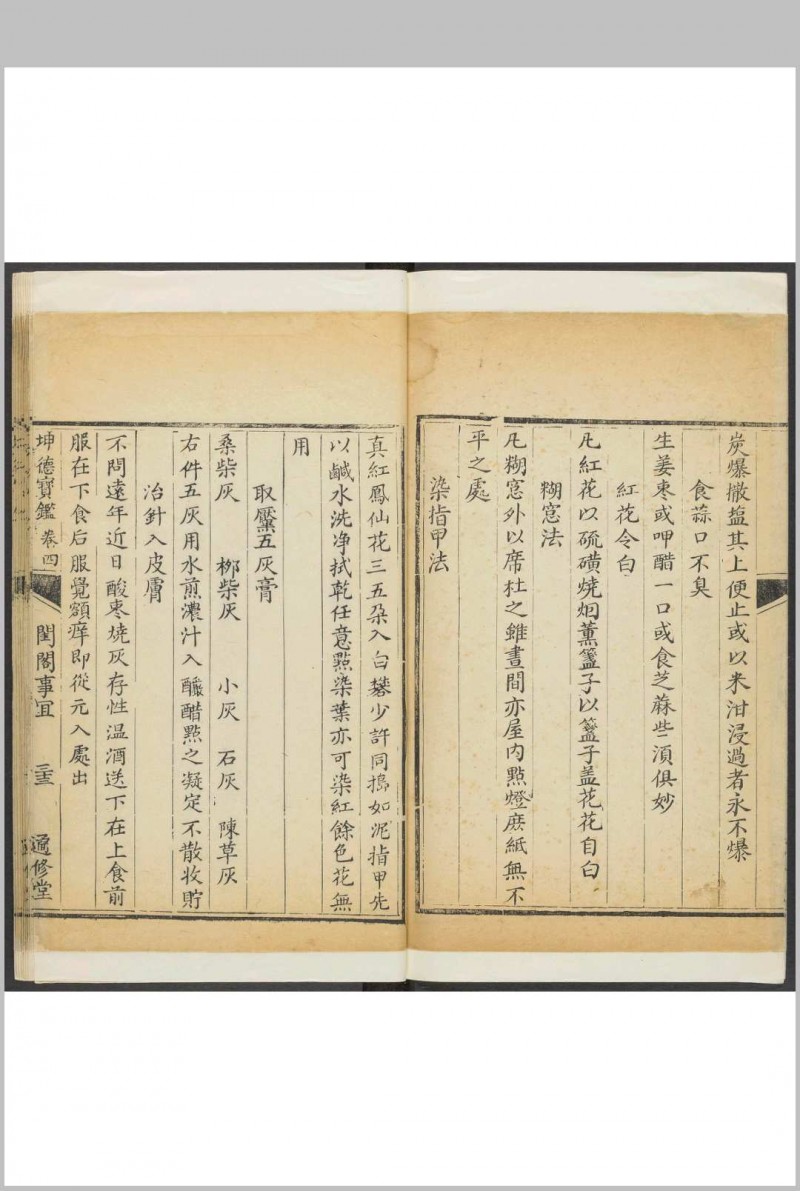 炭爆撒盐其上便止或以米泔浸過者永不爆
食蒜口不臭
生姜枣或呷醋一口或食芝蔴些須俱妙
紅花令白
凡紅花以硫磺燒烟薰盝子以盝子盖花花自白
糊窓法
凡糊窓外以席杜之雖晝間亦屋内點燈庻紙無不
平之處
染指甲法
真紅鳳仙花三五朶入白礬少許同搗如泥指甲先
以鹹水洗净拭乾任意㸃染葉亦可染紅餘色花無
用
取黶五灰膏
桑柴灰 桞柴灰 小灰 石灰 陳草灰
右件五灰用水煎濃汁入釅醋㸃之凝定不散收貯
治針入皮膚
不問遠年近日酸枣燒灰存性温酒送下在上食前
服在下食后服覺額痒即從元入處出
坤德寶鑑 卷四 閨閣事宜 二十三 通修堂